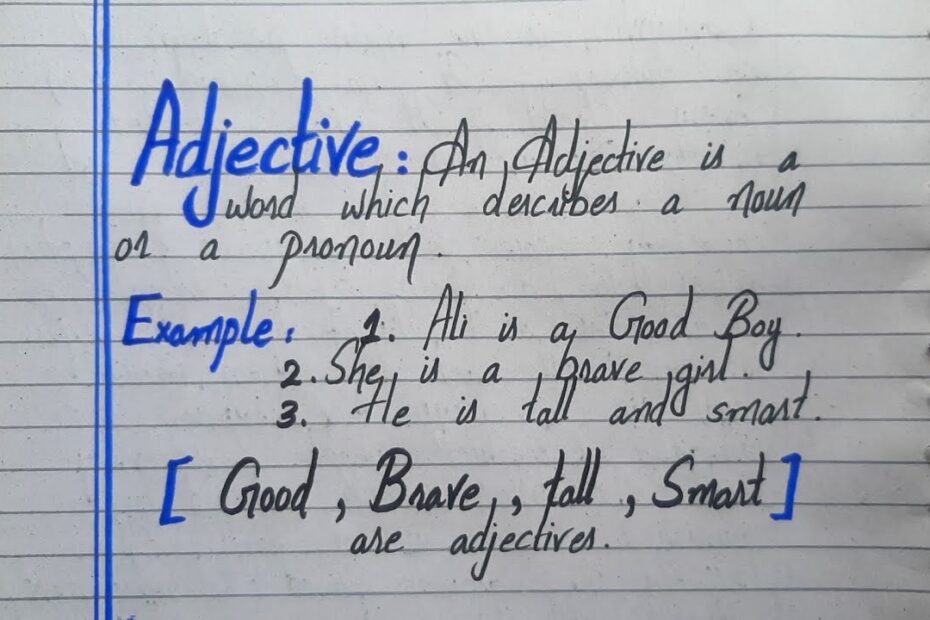 Adjective: An Adjective is a
word which describes a noun
or a pronoun.
Example: 1. Ali is a Good Boy.
2. She is a brave girl.
3. He is tall and smart.
[ Good, Brave, tall, Smart ]
are adjectives.